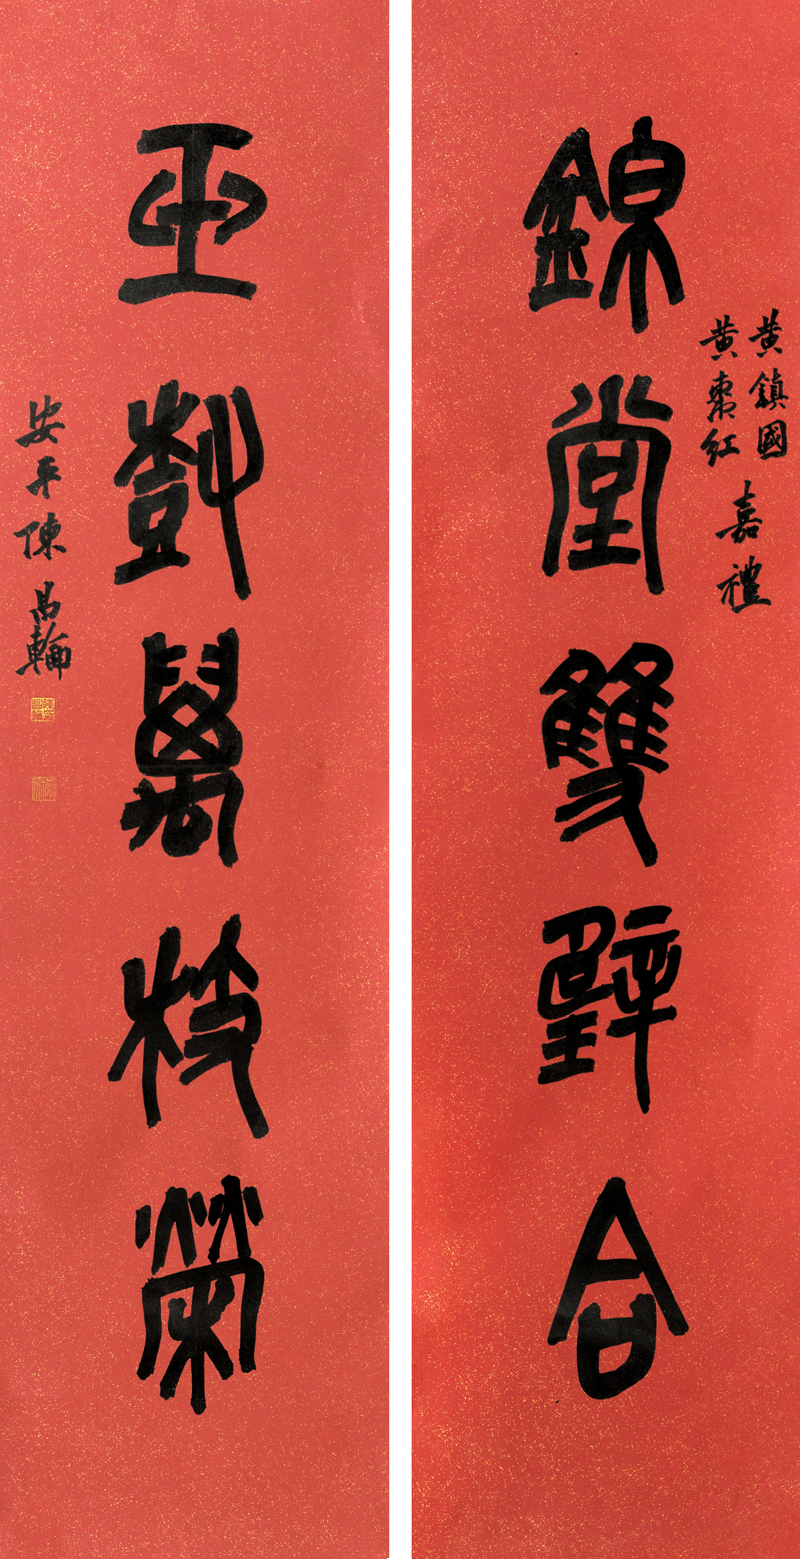 錦堂雙璧合
黃鎮國
黃棗紅
嘉禮
玉樹萬枝榮
安平陳昌輪